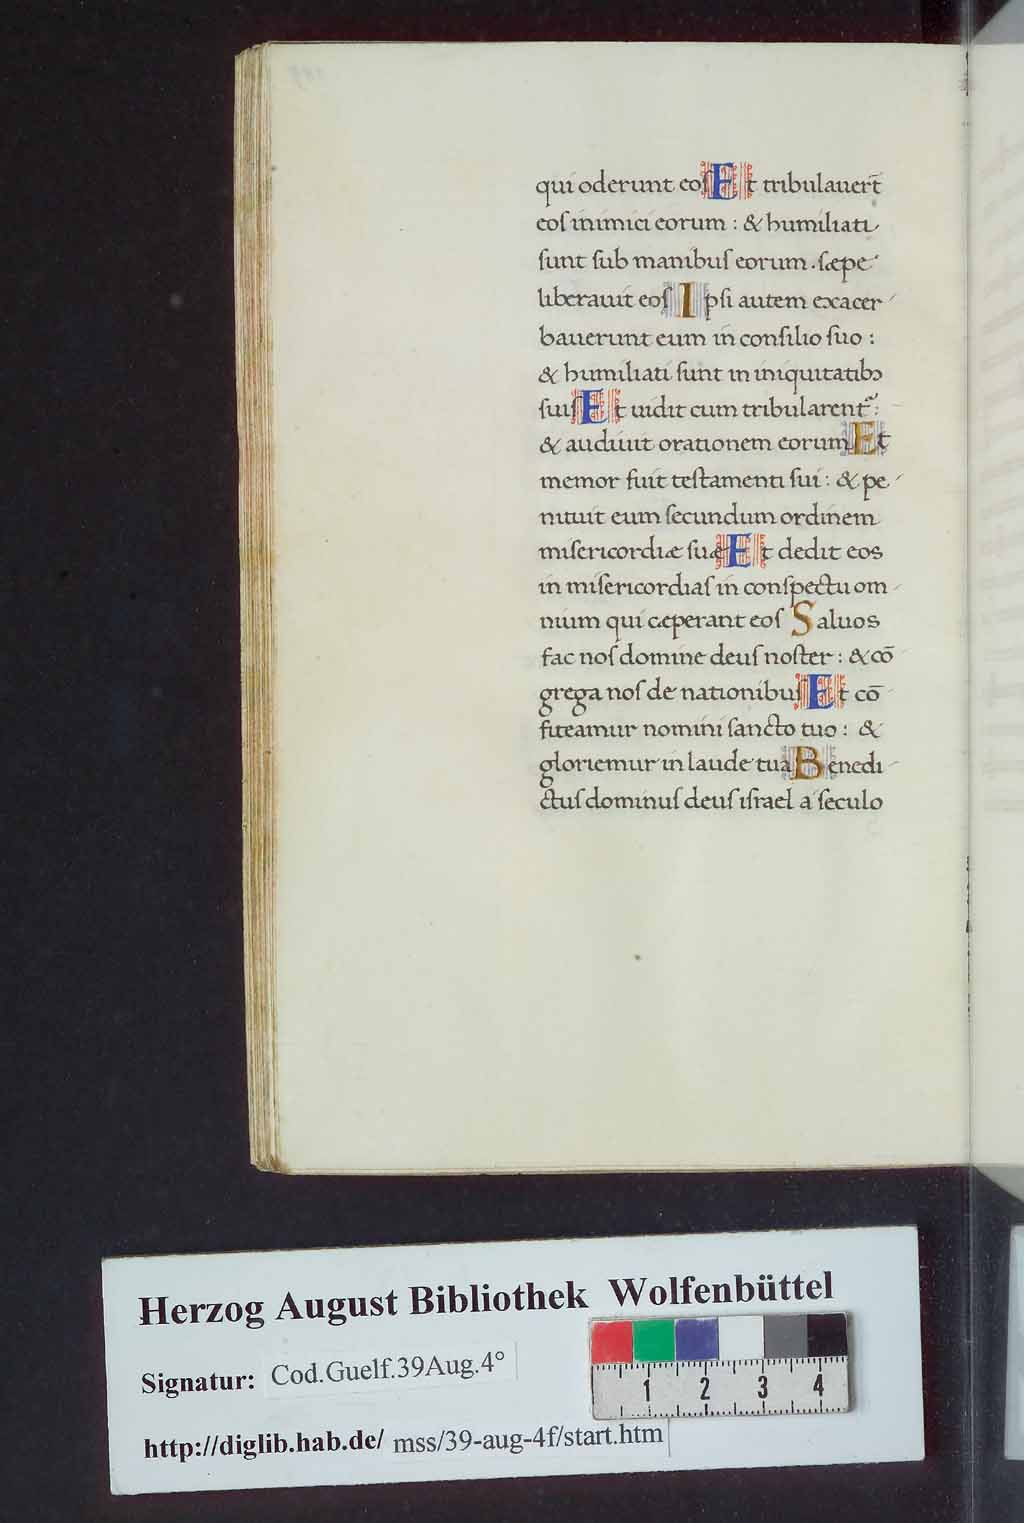 qui oderunt eoſ Et tribulauer̄t
eoſ inimici eorum : & humiliati
ſunt ſub manibuſ eorum . ſæpe
liberauit eoſ Ipſi autem exacer
bauerunt eum in conſilio ſuo :
& humiliati ſunt in iniquitatibꝫ
ſuiſ Et uidit cum tribularent᷑ :
& audiuit orationem eorum Et
memor fuit teſtamenti ſui : & pe
nituit eum ſecundum ordinem
miſericordiæ ſuæ Et dedit eos
in miſericordiaſ in conſpectu om
nium qui cæperant eoſ Saluos
fac noſ domine deuſ noſter : & cō
grega noſ de nationibuſ Et cō
fiteamur nomini ſancto tuo : &
gloriemur in laude tua Benedi
ctuſ dominuſ deuſ iſrael a ſeculo
Herzog August Bibliothek Wolfenbüttel
Signatur: Cod.Guelf.39Aug.4°
1 2 3 4
http://diglib.hab.de/ mss/39-aug-4f/start.htm